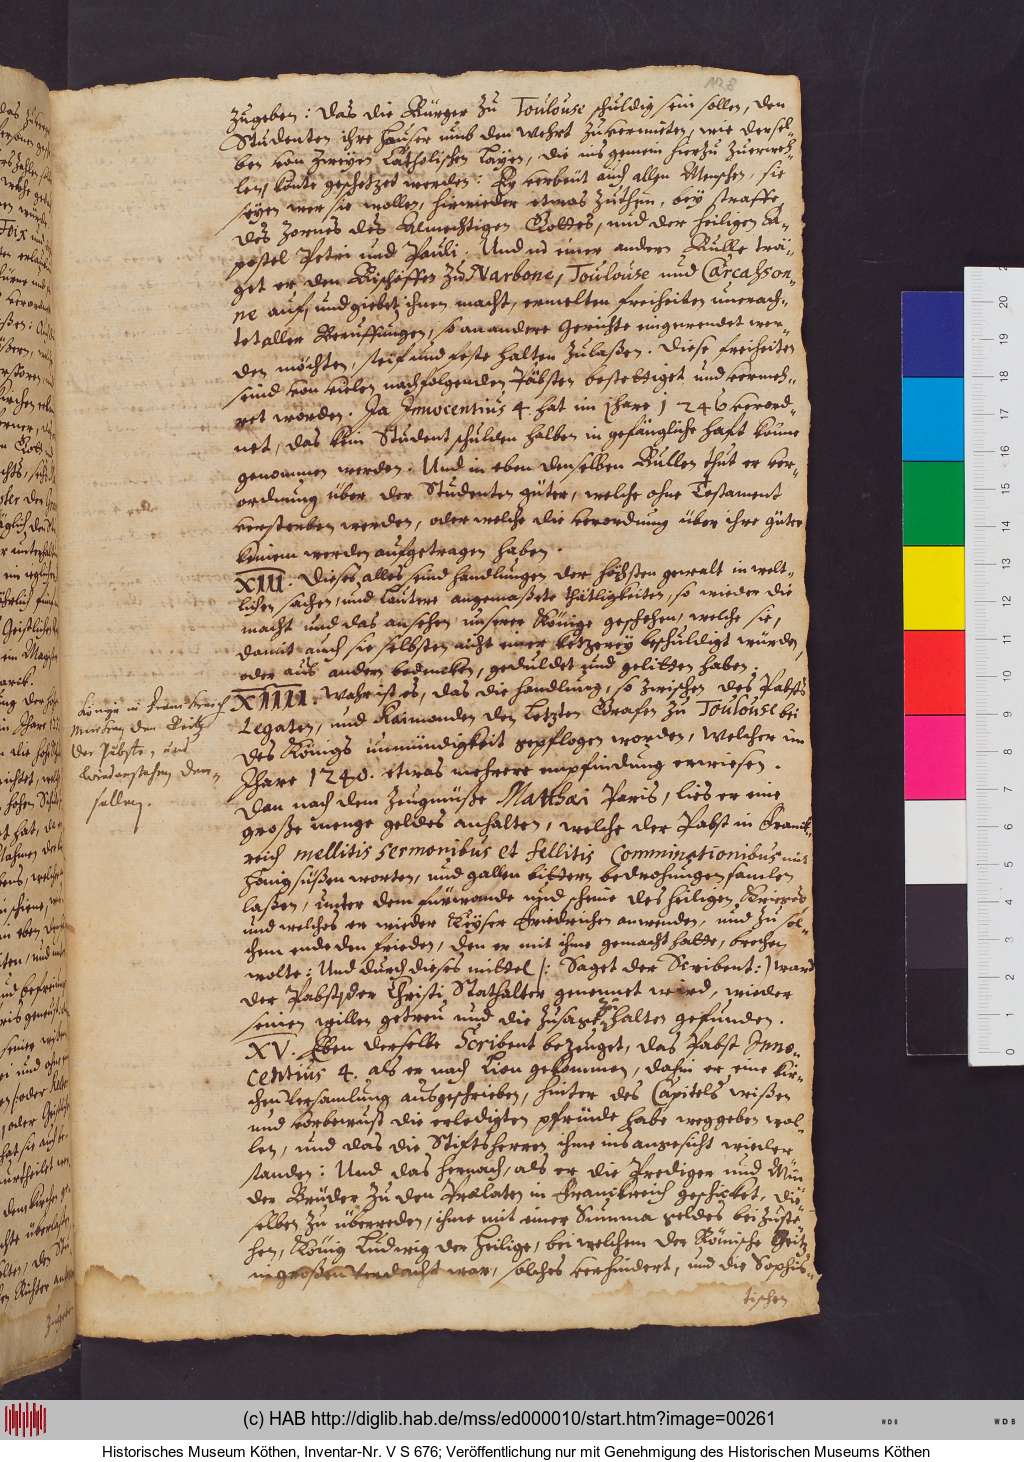 128
zugeben: das die Bürger zu Toulouse schuldig sein sollen, den
Studenten ihre Häuser umb den wehrt zuvermieten, wie dersel-
ben von zweyen Catholischen Layen, die ins gemein hierzu zuerweh-
len, könte geschetzet werden: Er verbeut auch allen Menschen, sie
seyen wer sie wollen, hierwieder etwas zuthun, bey straffe
des Zornes des Almechtigen Gottes, und der heiligen A-
postel Petri und Pauli. Und in einer andern Bulle trä-
get er den Bischöffen zu Narbone, Toulouse und Carcasson-
ne auf, und giebet ihnen macht, ermelten freiheiten unerach-
tet aller Beruffungen, so an andere Gerichte eingewendet wer-
den möchten, steif und feste halten zulaßen. Diese freiheiten
seind von vielen nachfolgenden Päbsten bestettiget und vermeh-
ret worden. Ja Innocentius 4. hat im Jhare 1246 verord-
net, das kein Student schulden halben in gefängliche haft könne
genommen werden. Und in eben denselben Bullen thut er ver-
ordnung über der Studenten güter, welche ohne Testament
versterben werden, oder welche die verordnung über ihre güter
keinem werden aufgetragen haben.
XIII. Dieses alles seind handlungen der höchsten gewalt in welt-
lichen sachen, und lautere angemaßete thätligkeiten, so wieder die
macht und das ansehen unserer Könige geschehen, welche sie,
damit auch sie selbsten nicht einer ketzerey beschuldigt würden,
oder aus andern bedencken, geduldet und gelitten haben.
XIIII. Wahr ist es, das die handlung, so zwischen des Pabsts
Legaten, und Raimunden den Letzten Grafen zu Toulouse bei
des Königs unmündigkeit gepflogen worden, Welcher im
Jhare 1240. etwas mehrere empfindung erwiesen.
Dan nach dem Zeugnüße Matthæi Paris, lies er eine
große menge geldes anhalten, welche der Pabst in Franck-
reich mellitis sermonibus et fellitis Comminationibus mit
Honigsüßen worten, und gallen bittern bedrohungen samlen
laßen, unter dem fürwande und scheine des heiligen Krieges
und welches er wieder Keyser Friedrichen anwenden, und zu sol-
chem ende den frieden, den er mit ihme gemacht hatte, brechen
wolte: Und durch dieses mittel /: Saget der Scribent :/ ward
der Pabst, der Christi Stathalter genennet wird, wieder
seinen willen getreu und die Zusage zu halten gefunden.
XV. Eben derselbe Scribent bezeuget, das Pabst Inno-
centius 4. als er nach Lion gekommen, dahin er eine kir-
chen Versamlung ausgeschrieben, hinter des Capitels wißen
und vorbewust die erledigten pfründe habe weggeben wol-
len, und das die Stiftsherren ihme ins angesicht wieder-
standen: Und das hernach, als er die Prediger und Min-
der Brüder zu den Prælaten in Franckreich geschicket, die-
selben zu überreden, ihme mit einer Summa geldes bei zuste-
hen, König Ludwig der Heilige, bei welchem der Römische Geitz
in großen verdacht war, solches verhindert, und die Sophis-
tischen
Könige in Franckreich
mercken den Geitz
der Päbste, und
wiederstehen dem-
selben.
(c) HAB http://diglib.hab.de/mss/ed000010/start.htm?image=00261
Historisches Museum Köthen, Inventar-Nr. V S 676; Veröffentlichung nur mit Genehmigung des Historischen Museums Köthen